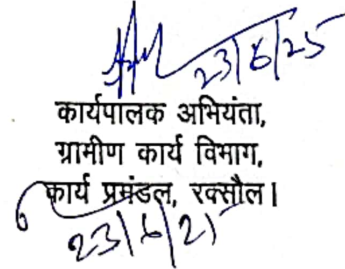 23/6/25
कार्यपालक अभियंता,
ग्रामीण कार्य विभाग,
कार्य प्रमंडल, रक्सौल।
23/6/25